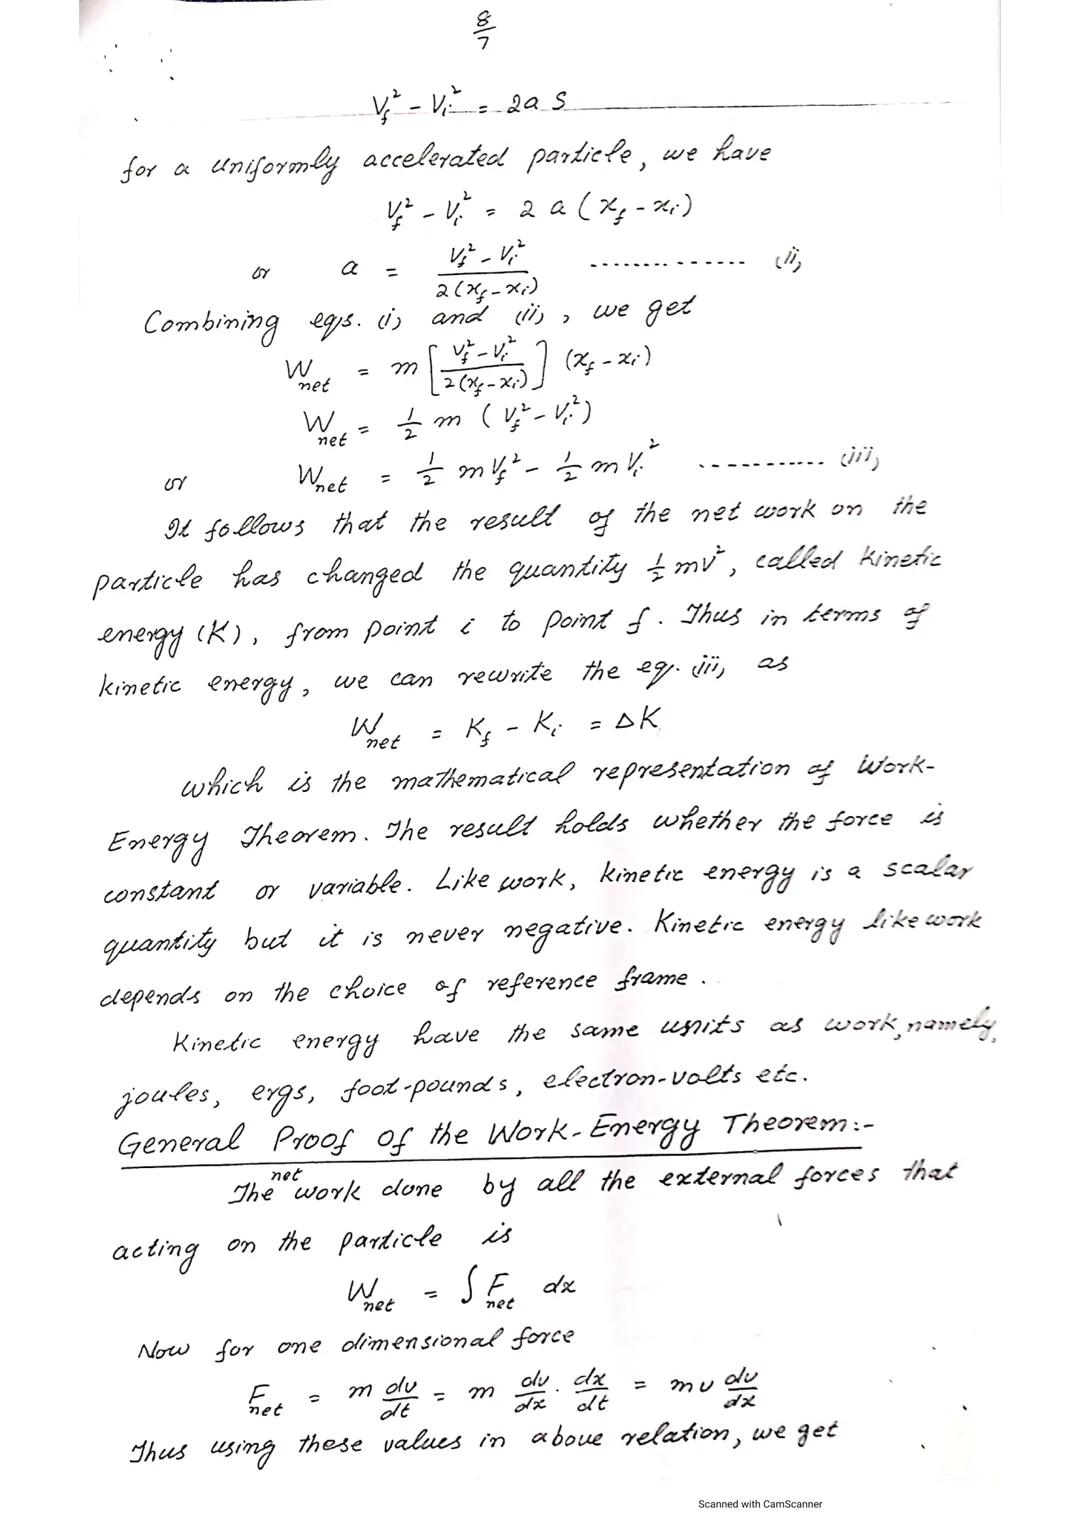 8/7
V_f² - V_i² = 2a S
for a uniformly accelerated particle, we have
V_f² - V_i² = 2 a (x_f - x_i)
or a = (V_f² - V_i²) / 2(x_f - x_i) .............. (ii)
Combining eqs. (i) and (ii), we get
W_net = m [ (V_f² - V_i²) / 2(x_f - x_i) ] (x_f - x_i)
W_net = 1/2 m (V_f² - V_i²)
or W_net = 1/2 m V_f² - 1/2 m V_i² ............ (iii)
It follows that the result of the net work on the
particle has changed the quantity 1/2 mv², called kinetic
energy (K), from point i to point f. Thus in terms of
kinetic energy, we can rewrite the eq. (iii) as
W_net = K_f - K_i = ΔK
which is the mathematical representation of Work-
Energy Theorem. The result holds whether the force is
constant or variable. Like work, kinetic energy is a scalar
quantity but it is never negative. Kinetic energy like work
depends on the choice of reference frame.
Kinetic energy have the same units as work, namely,
joules, ergs, foot-pounds, electron-volts etc.
General Proof of the Work-Energy Theorem:-
The net work done by all the external forces that
acting on the particle is
W_net = ∫ F_net dx
Now for one dimensional force
F_net = m dv/dt = m dv/dx . dx/dt = m v dv/dx
Thus using these values in above relation, we get
Scanned with CamScanner